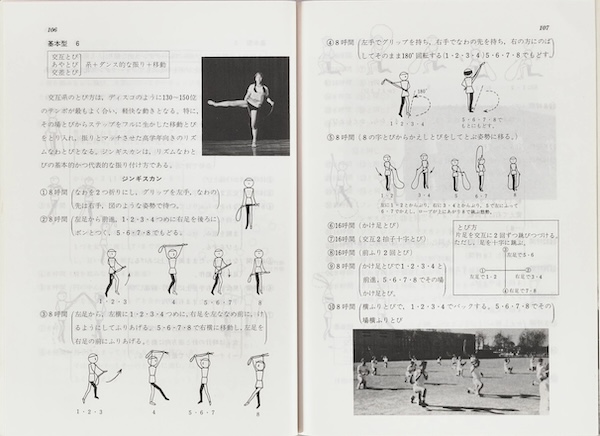 106
基本型 6
交互とび
あやとび
交差とび
系+ダンス的な振り+移動
交互系のとび方は、ディスコのように130~150位
のテンポが最もよく合い、軽快な動きとなる。特に、
その場とびからステップをフルに生かした移動とび
をとり入れ、振りとマッチさせた高学年向きのリズ
ムなわとびとなる。ジンギスカンは、リズムなわと
びの基本的かつ代表的な振り付け方である。
ジンギスカン
①8呼間 なわを2つ折りにし、グリップを左手、なわの
先は右手、図のような姿勢で待つ。
②8呼間 左足から前進。1・2・3・4つめに右足を後ろに
ポンとつく。5・6・7・8でもどる。
1・2・3 4 5・6・7 8
③8呼間 左足から、左横に1・2・3・4つめに、右足を左ななめ前に、け
るようにしてふりあげる。5・6・7・8で右横に移動し、左足を
右足の前にふりあげる。
1・2・3 4 5・6・7 8
107
④8呼間 左手でグリップを持ち、右手でなわの先を持ち、右の方にのば
してそのまま180°回転する(1・2・3・4)5・6・7・8でもどす。
180°
1・2・3・4
5・6・7・8で
もとにもどす。
⑤8呼間 (8の字とびからかえしとびをしてとぶ姿勢に移る。)
1・2 3・4 5 6 7 8
⑥16呼間 (かけ足とび)
⑦16呼間 (交互2拍子十字とび)
⑧16呼間 (前ふり2回とび)
⑨8呼間 かけ足とびで1・2・3・4と
前進。5・6・7・8でその場
かけ足とび。
とび方
片足を交互に2回ずつ跳びつづける。
ただし、足を十字に跳ぶ。
③
左足で5・6
①
左足で1・2
②
右足で3・4
④右足で7・8
⑩8呼間 横ふりとびで、1・2・3・4でバックする。5・6・7・8でその
場横ふりとび